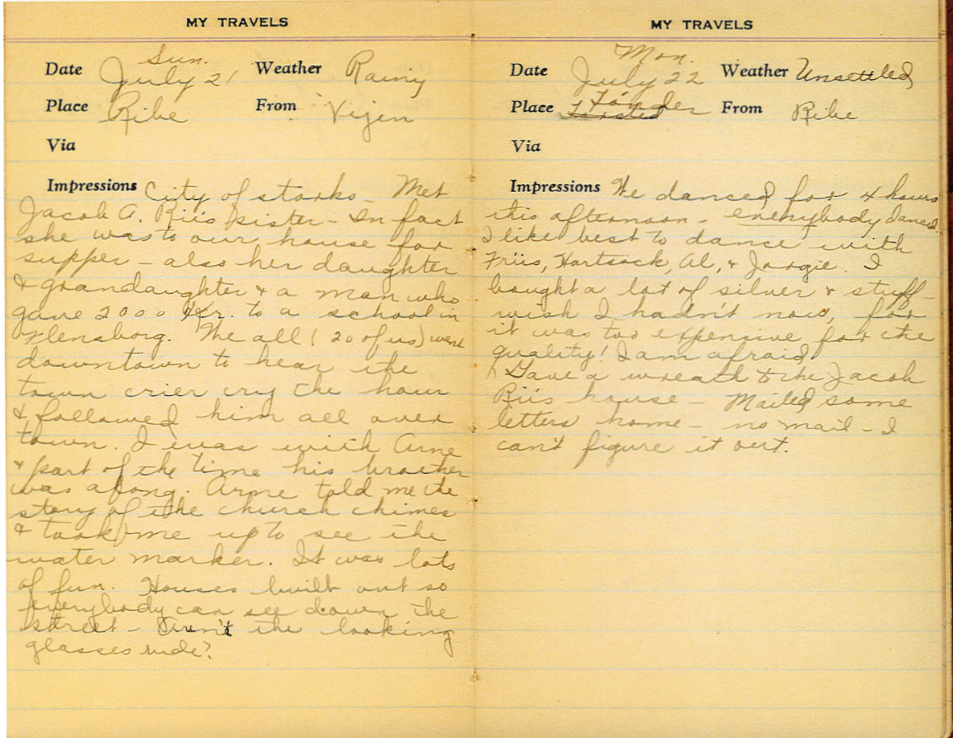 MY TRAVELS
Sun.
Date July 21 Weather Rainy
Place Ribe From Vijen
Via
Impressions City of storks - Met
Jacob A. Riis sister - In fact
she was to our house for
supper - also her daughter
& grandaughter & a man who
gave 2000 Kr. to a school in
Flensborg. We all (20 of us) went
downtown to hear the
town crier cry the hour
& followed him all over
town. I was with Arne
& part of the time his brother
was along. Arne told me the
story of the church chimes
& took me up to see the
water marker. It was lots
of fun. Houses built out so
everybody can see down the
street - Aren't the looking
glasses rude?
MY TRAVELS
Mon.
Date July 22 Weather Unsettled
Place Tönder From Ribe
Via
Impressions We danced for 4 hours
this afternoon - everybody danced.
I like best to dance with
Friis, Hartsock, Al, & Jorgie. I
bought a lot of silver & stuff -
wish I hadn't now, for
it was too expensive for the
quality! I am afraid
Gave a wreath to the Jacob
Riis house - Mailed some
letters home - no mail - I
can't figure it out.